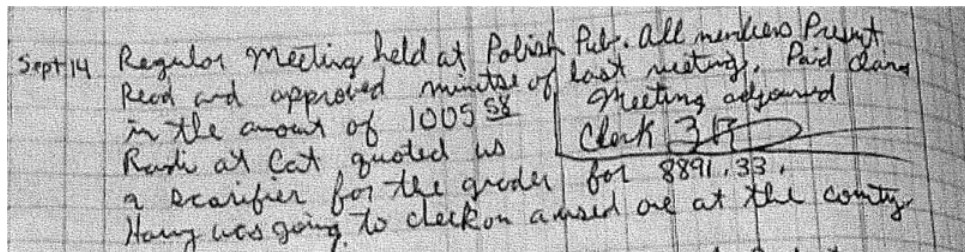 Sept 14 Regular Meeting held at Polish Pub. All members Present
Read and approved minutes of last meeting, Paid
in the amount of 1005 58 Meeting adjourned
Rade at Cat quoted us Clerk
a scarifier for the grader for 8891.33.
Harry was going to check on a used one at the county.